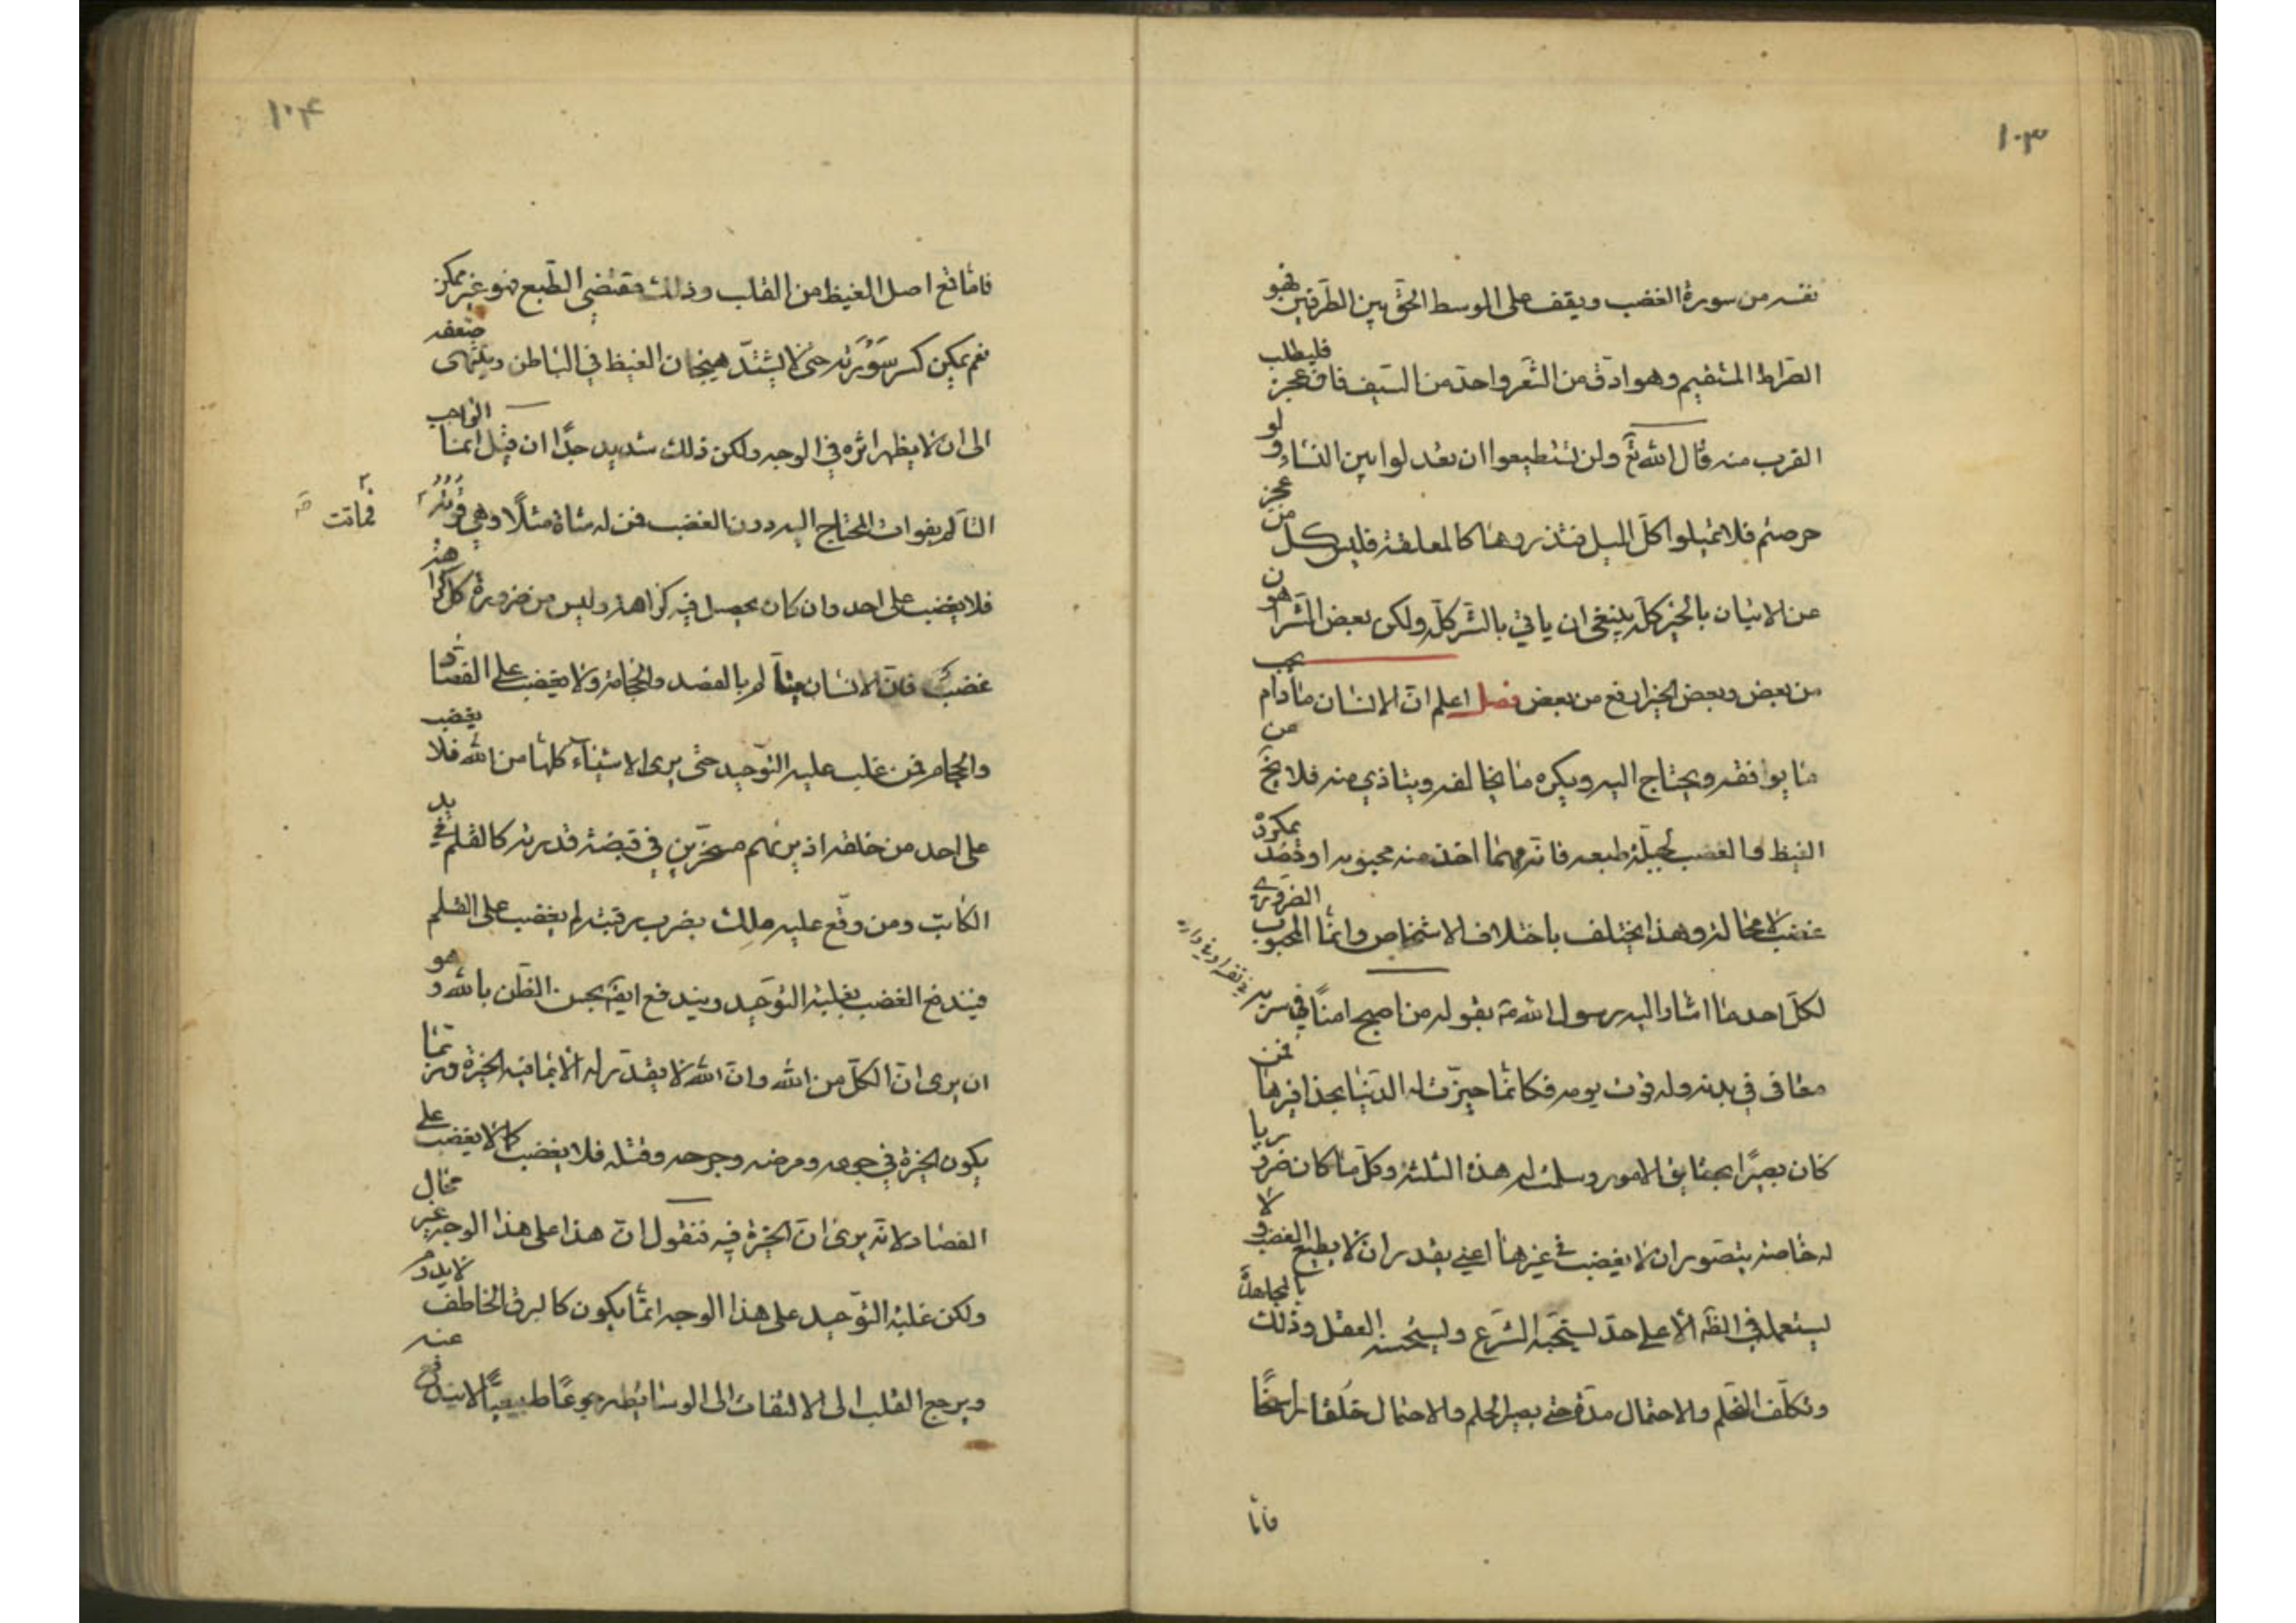 ١٠٣
نفسه من سورة الغضب ويقف على الوسط الحق بين الطرفين فهو
الصراط المستقيم وهو ادق من الشعر واحد من السيف فان عجز فليطلب
القرب منه قال الله تع ولن تستطيعوا ان تعدلوا بين النساء ولو
حرصتم فلا تميلوا كل الميل فتذروها كالمعلقة فليس كل من عجز
عن الاتيان بالخير كله ينبغي ان ياتي بالشر كله ولكن بعض الشر اهون
من بعض وبعض الخير ارفع من بعض فصل اعلم ان الانسان مادام يحب
ما يوافقه ويحتاج اليه ويكره ما يخالفه ويتاذي منه فلا يخ عن
الغيظ والغضب لجبلة طبعه فانه مهما اخذ منه محبوبه او قصد بمكروه
غضب لا محالة وهذا يختلف باختلاف الاشخاص وانما المحبوب الضروري
لكل احد ما اشار اليه رسول الله ص بقوله من اصبح امنا في سربه
معافى في بدنه وله قوت يومه فكانما حيزت له الدنيا بحذافيرها فمن
كان بصيرا بحقايق الامور وسلمت له هذه الثلثة وكل ما كان ضروريا
له خاصة يتصور ان لا يغضب في غيرها اعني يقدر ان لا يطيع الغضب ولا
يستعمله في الظاهر الا على حد يستحبه الشرع ويستحسنه العقل وذلك بالمجاهدة
وتكلف التحلم والاحتمال مدة حتى يصير الحلم والاحتمال خلقا راسخا
فاما
١٠۴
فاما قع اصل الغيظ من القلب وذلك مقتضي الطبع فهو غير ممكن
نعم يمكن كسر سورته حتى لا يشتد هيجان الغيظ في الباطن وينتهى ضعفه
الى ان لا يظهر اثره في الوجه ولكن ذلك شديد جدا ان قيل انما الواجب
التالم بفوات المحتاج اليه دون الغضب فمن له شاة مثلا وهي قوته
فماتت
فلا يغضب على احد وان كان يحصل فيه كراهة وليس من ضرورة كل كراهة
غضب فان الانسان يتالم بالفصد والحجامة ولا يغضب على الفصاد
والحجام فمن غلب عليه التوحيد حتى يرى الاشياء كلها من الله فلا يغضب
على احد من خلقه اذ يريهم مسخرين في قبضة قدرته كالقلم في يد
الكاتب ومن وقع عليه ملك بضرب رقبته لم يغضب على القلم
فيندفع الغضب بغلبة التوحيد ويندفع ايضا بحسن الظن بالله وهو
ان يرى ان الكل من الله وان الله لا يقدر له الا ما فيه الخيرة وربما
يكون الخيرة في جوعه ومرضه وجرحه وقتله فلا يغضب كما لا يغضب على
الفصاد لانه يرى ان الخيرة فيه فنقول ان هذا على هذا الوجه غير محال
ولكن غلبة التوحيد على هذا الوجه انما يكون كالبرق الخاطف لا يدوم
ويرجع القلب الى الالتفات الى الوسايط رجوعا طبيعيا لا يندفع عنه